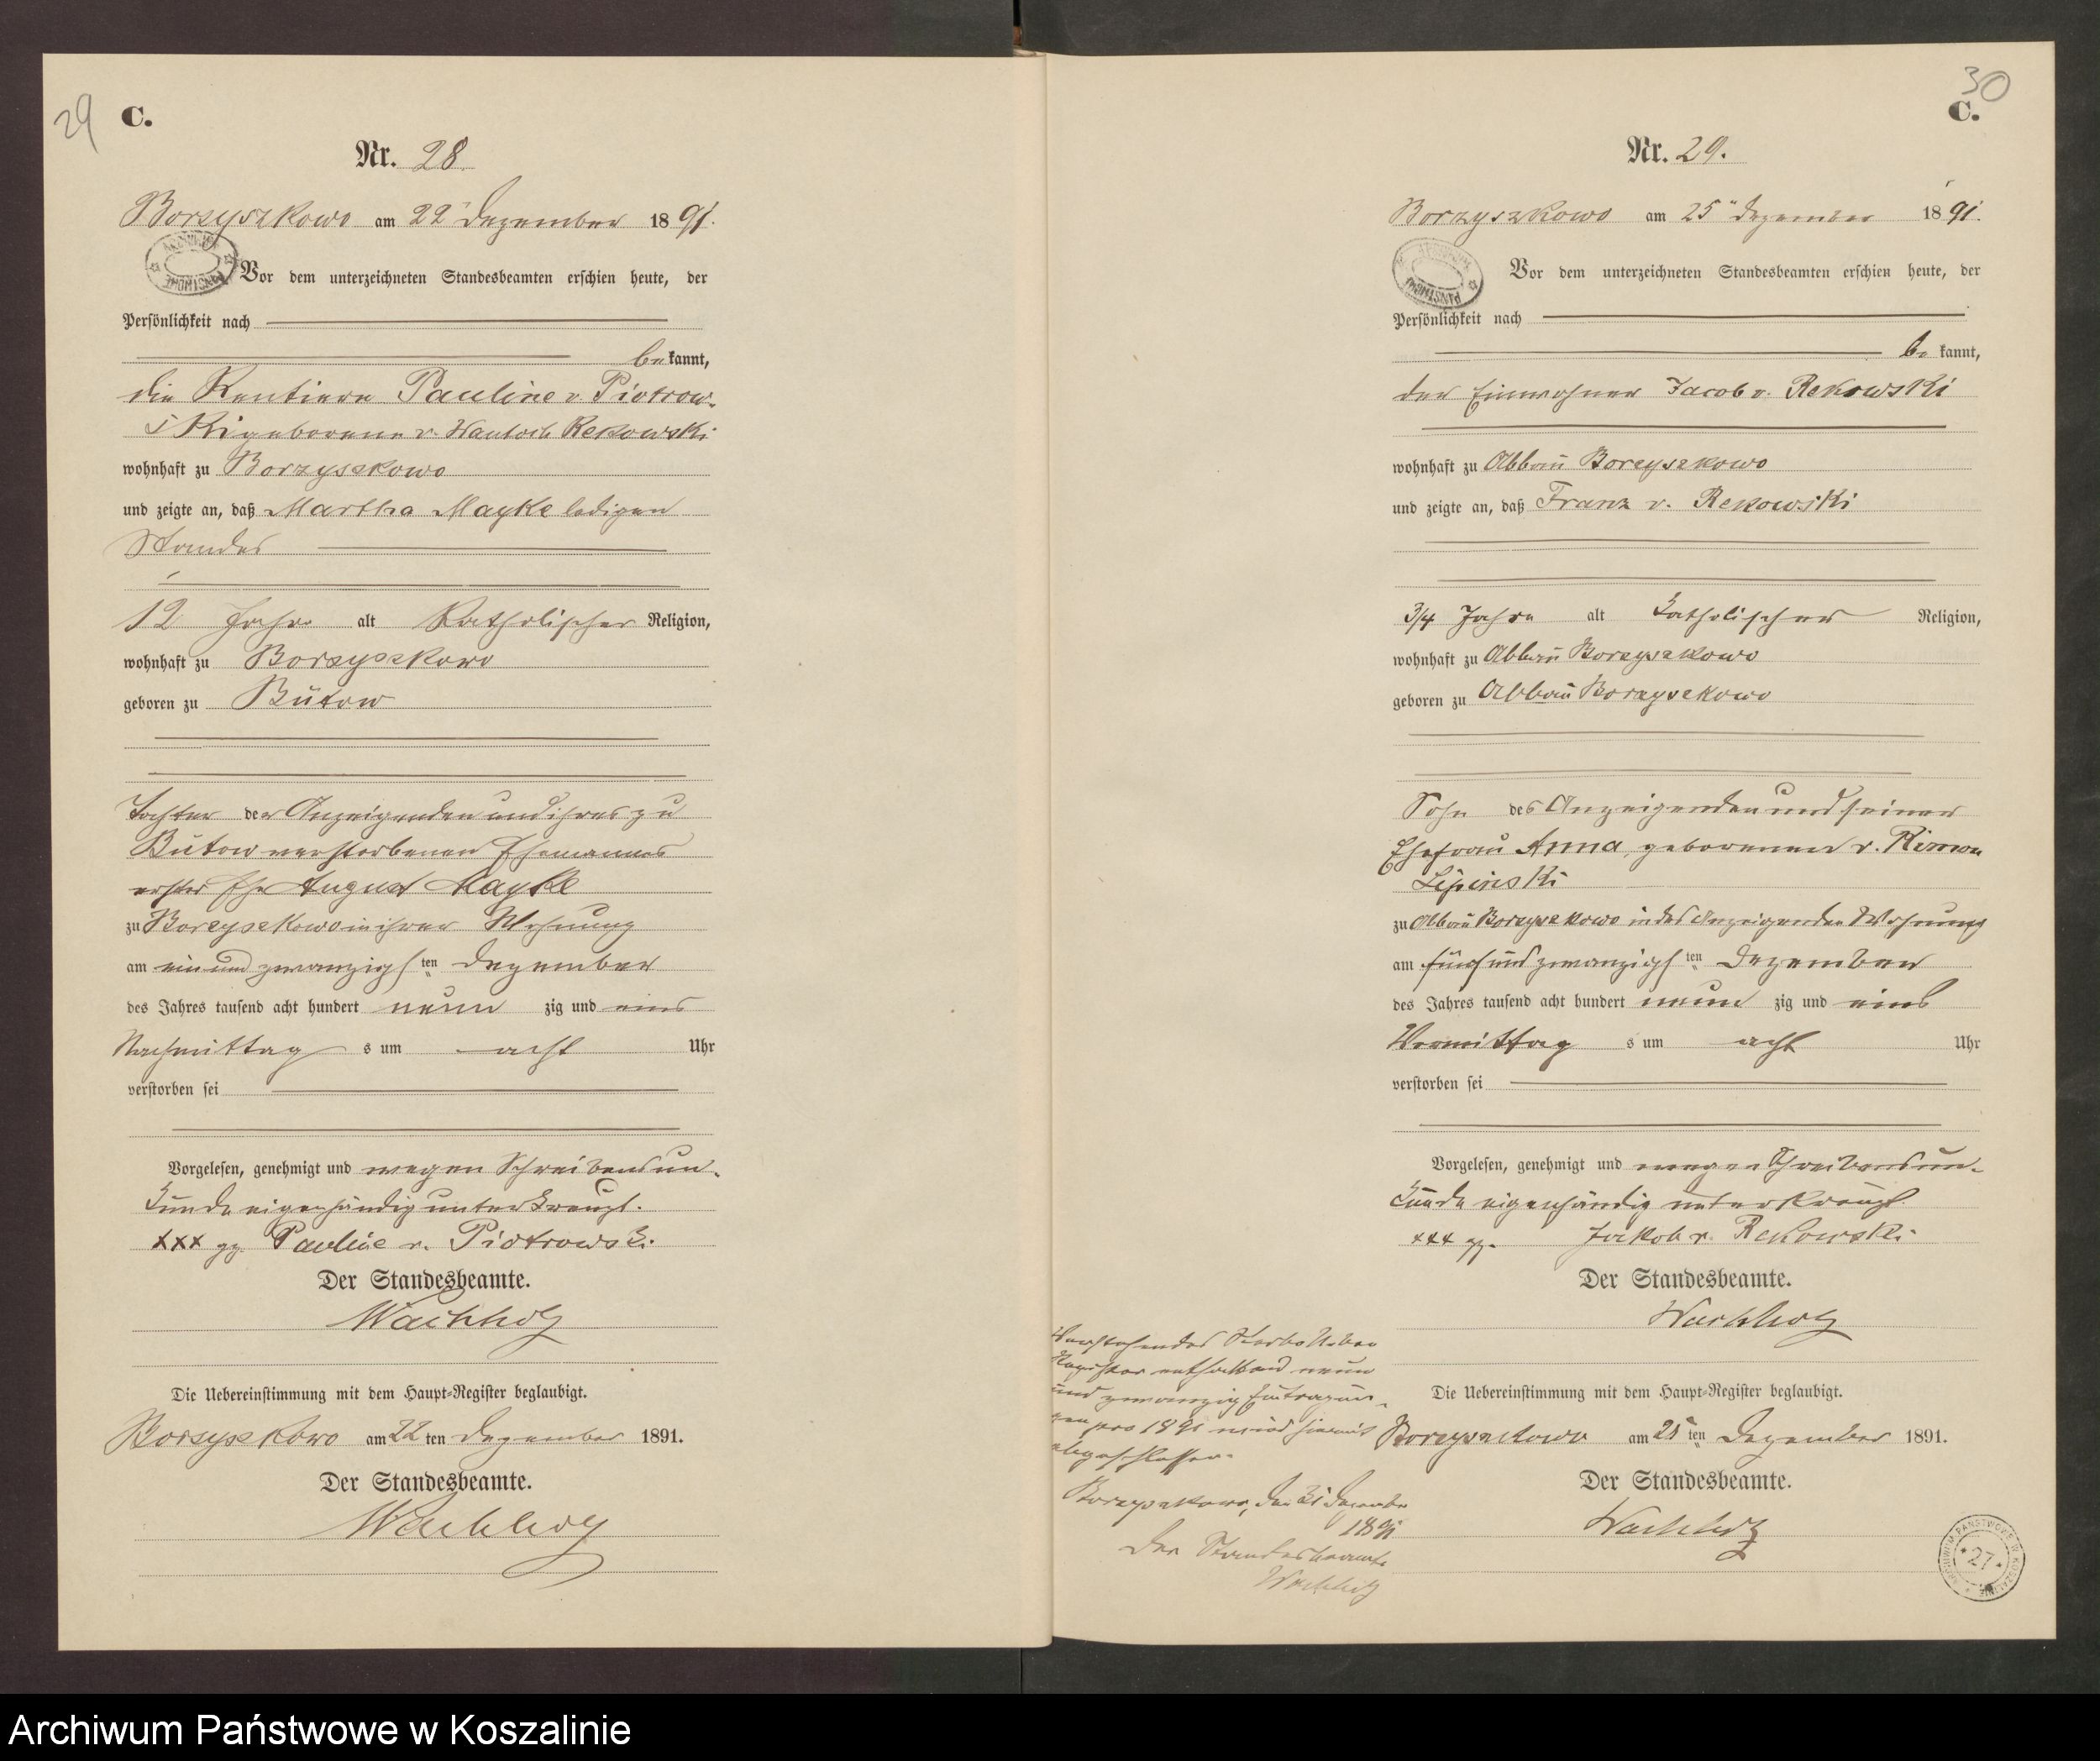 29
C.
Nr. 28
Borzyszkowo am 22 Dezember 1891.
Vor dem unterzeichneten Standesbeamten erschien heute, der
Persönlichkeit nach
bekannt,
die Rentiere Pauline v. Piotrow-
ski geborenen v. Wantoch Rekowski
wohnhaft zu Borzyszkowo
und zeigte an, daß Martha Mayke ledigen
Standes
12 Jahre alt Katholischer Religion,
wohnhaft zu Borzyszkowo
geboren zu Bütow
Tochter der Anzeigenden und ihres zu
Bütow verstorbenen Ehemannes
erster Ehe August Mayke
zu Borzyszkowo in ihrer Wohnung
am ein und zwanzigsten Dezember
des Jahres tausend acht hundert neun zig und eins
Nachmittags um acht Uhr
verstorben sei
Vorgelesen, genehmigt und wegen Schreibensun-
kunde eigenhändig unterkreuzt.
xxx gz. Pauline v. Piotrowski
Der Standesbeamte.
Wachholz
Die Uebereinstimmung mit dem Haupt-Register beglaubigt.
Borzyszkowo am 22 ten Dezember 1891.
Der Standesbeamte.
Wachholz
30
C.
Nr. 29.
Borzyszkowo am 25 Dezember 1891.
Vor dem unterzeichneten Standesbeamten erschien heute, der
Persönlichkeit nach
be kannt,
der Einwohner Jacob v. Rekowski
wohnhaft zu Abbau Borzyszkowo
und zeigte an, daß Franz v. Rekowski
3/4 Jahre alt Katholischer Religion,
wohnhaft zu Abbau Borzyszkowo
geboren zu Abbau Borzyszkowo
Sohn des Anzeigenden und seiner
Ehefrau Anna, geborenen v.
Lipinski
zu Abbau Borzyszkowo in des Anzeigenden Wohnung
am fünf und zwanzigsten Dezember
des Jahres tausend acht hundert neun zig und eins
Vormittags um acht Uhr
verstorben sei
Vorgelesen, genehmigt und wegen Schreibensun-
kunde eigenhändig unterkreuzt.
xxx gz. Jakob v. Rekowski
Der Standesbeamte.
Wachholz
Die Uebereinstimmung mit dem Haupt-Register beglaubigt.
Borzyszkowo am 25 ten Dezember 1891.
Der Standesbeamte.
Wachholz
Vorstehendes Sterbe Neben
Register enthaltend neun
und zwanzig Eintragun-
gen pro 1891 wird hiermit
abgeschlossen.
Borzyszkowo, den 31 Dezember
1891
Der Standesbeamte
Wachholz
ARCHIWUM PAŃSTWOWE W KOSZALINIE
27
Archiwum Państwowe w Koszalinie